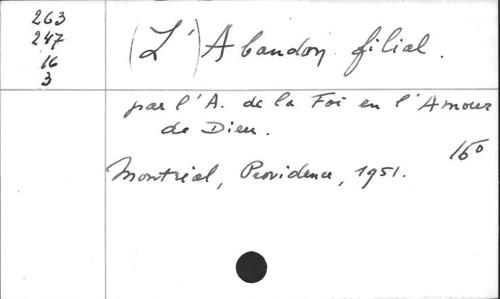 263
247
16
3
(L') Abandon filial.
par l'A. de la Foi en l'Amour
de Dieu.
16°
Montréal, Providence, 1951.